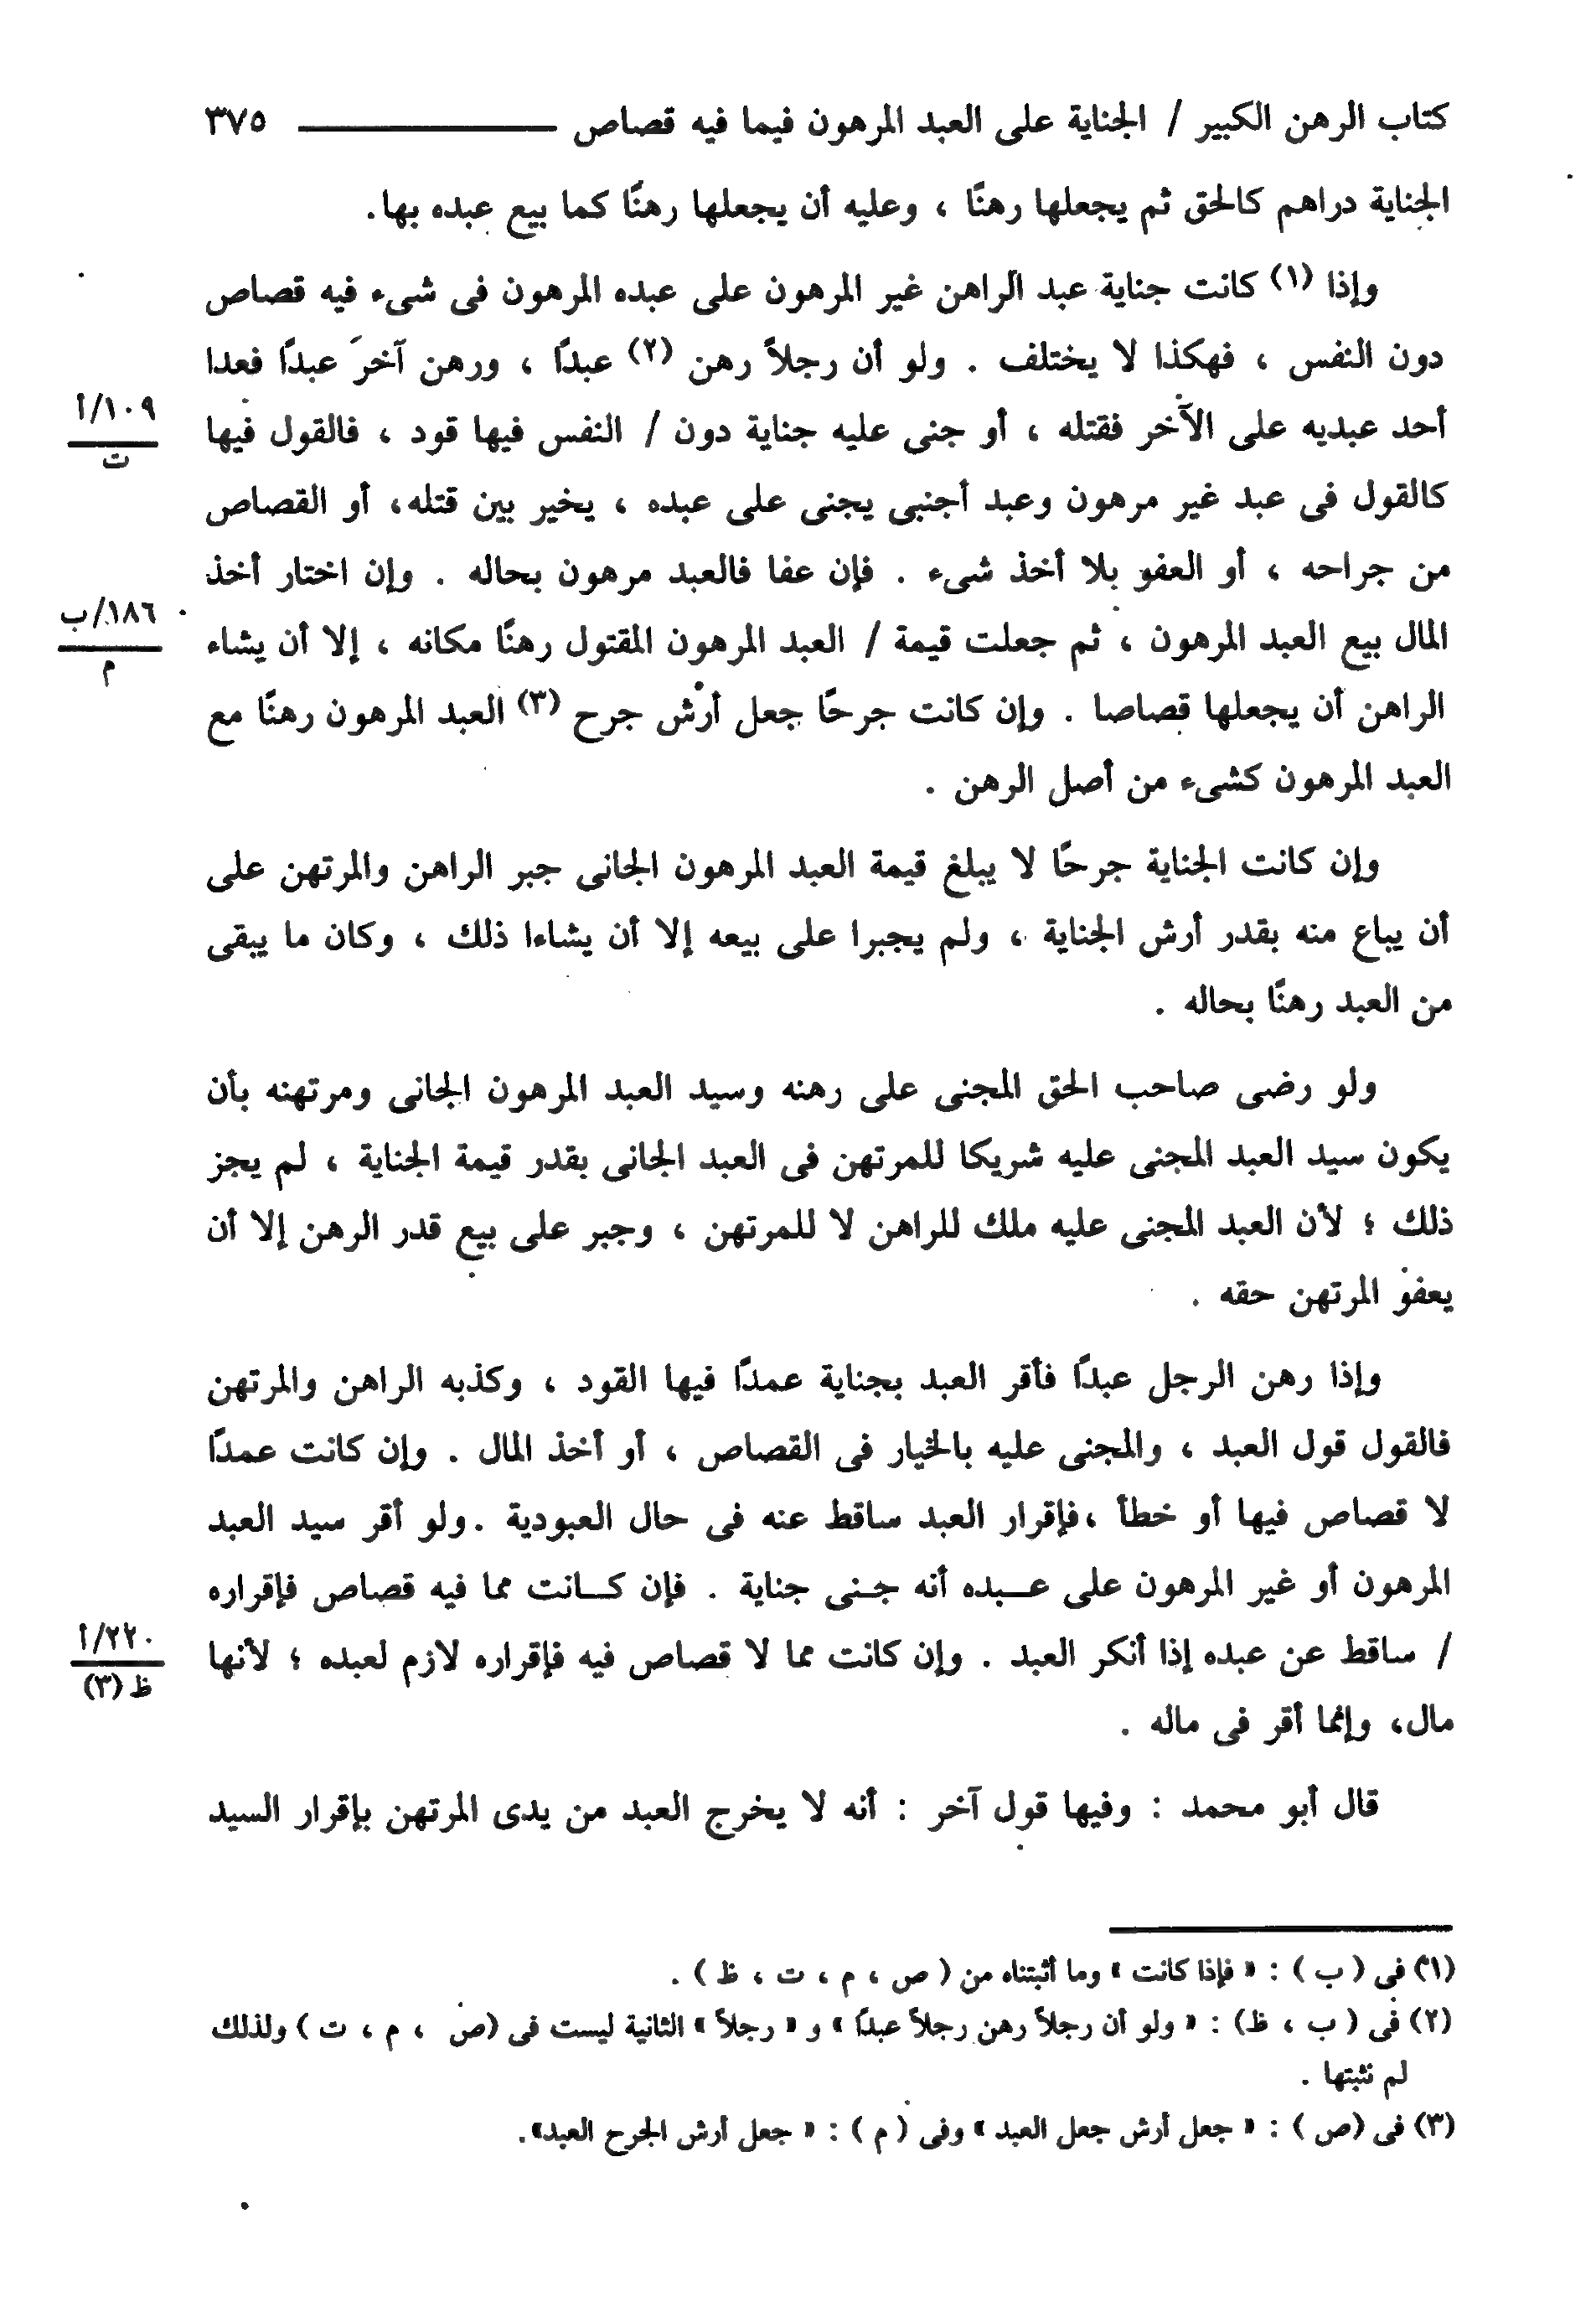 كتاب الرهن الكبير / الجناية على العبد المرهون فيما فيه قصاص ٣٧٥
الجناية دراهم كالحق ثم يجعلها رهنًا ، وعليه أن يجعلها رهنًا كما بيع عبده بها.
وإذا (١) كانت جناية عبد الراهن غير المرهون على عبده المرهون فى شىء فيه قصاص
دون النفس ، فهكذا لا يختلف . ولو أن رجلاً رهن (٢) عبدًا ، ورهن آخر عبدًا فعدا
أحد عبديه على الآخر فقتله ، أو جنى عليه جناية دون / النفس فيها قود ، فالقول فيها
١٠٩/أ
ت
كالقول فى عبد غير مرهون وعبد أجنبى يجنى على عبده ، يخير بين قتله، أو القصاص
من جراحه ، أو العفو بلا أخذ شىء . فإن عفا فالعبد مرهون بحاله . وإن اختار أخذ
المال بيع العبد المرهون ، ثم جعلت قيمة / العبد المرهون المقتول رهنًا مكانه ، إلا أن يشاء
١٨٦/ب
م
الراهن أن يجعلها قصاصا . وإن كانت جرحًا جعل أرش جرح (٣) العبد المرهون رهنًا مع
العبد المرهون كشىء من أصل الرهن .
وإن كانت الجناية جرحًا لا يبلغ قيمة العبد المرهون الجانى جبر الراهن والمرتهن على
أن يباع منه بقدر أرش الجناية ، ولم يجبرا على بيعه إلا أن يشاءا ذلك ، وكان ما يبقى
من العبد رهنًا بحاله .
ولو رضى صاحب الحق المجنى على رهنه وسيد العبد المرهون الجانى ومرتهنه بأن
يكون سيد العبد المجنى عليه شريكا للمرتهن فى العبد الجانى بقدر قيمة الجناية ، لم يجز
ذلك ؛ لأن العبد المجنى عليه ملك للراهن لا للمرتهن ، وجبر على بيع قدر الرهن إلا أن
يعفو المرتهن حقه .
وإذا رهن الرجل عبدًا فأقر العبد بجناية عمدًا فيها القود ، وكذبه الراهن والمرتهن
فالقول قول العبد ، والمجنى عليه بالخيار فى القصاص ، أو أخذ المال . وإن كانت عمدًا
لا قصاص فيها أو خطأ ،فإقرار العبد ساقط عنه فى حال العبودية .ولو أقر سيد العبد
المرهون أو غير المرهون على عـــبده أنه جـنى جناية . فإن كـــانت مما فيه قصاص فإقراره
/ ساقط عن عبده إذا أنكر العبد . وإن كانت مما لا قصاص فيه فإقراره لازم لعبده ؛ لأنها
٢٢٠/أ
ظ (٣)
مال، وإنما أقر فى ماله .
قال أبو محمد : وفيها قول آخر : أنه لا يخرج العبد من يدى المرتهن بإقرار السيد
(١) فى ( ب ) : « فإذا كانت » وما أثبتناه من ( ص ، م ، ت ، ظ ) .
(٢) فى ( ب ، ظ) : « ولو أن رجلاً رهن رجلاً عبدًا » و « رجلاً » الثانية ليست فى (ص ، م ، ت ) ولذلك
لم نثبتها .
(٣) فى (ص ) : « جعل أرش جعل العبد » وفى ( م ) : « جعل أرش الجرح العبد».